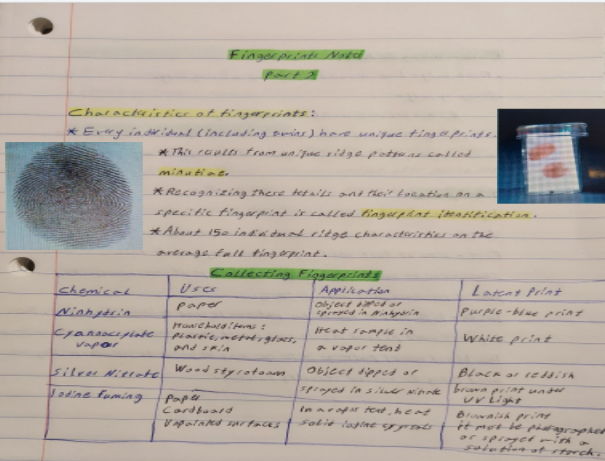 Fingerprints Notes
Part 2
Characteristics of fingerprints:
* Every individual (including twins) have unique fingerprints.
* This results from unique ridge patterns called
minutiae.
* Recognizing these details and their location on a
specific fingerprint is called fingerprint identification.
* About 150 individual ridge characteristics on the
average full fingerprint.
Collecting Fingerprints
Chemical Uses Application Latent Print
Ninhydrin Paper Object dipped or sprayed in Ninhydrin Purple-blue print
Cyanoacrylate vapor Household items: plastic, metal, glass, and skin Heat sample in a vapor tent White print
Silver Nitrate Wood styrofoam Object dipped or sprayed in silver nitrate Black or reddish brown print under UV Light
Iodine fuming Paper Cardboard Unpainted surfaces In a vapor tent, heat solid iodine crystals Brownish print it must be photographed or sprayed with a solution of starch.